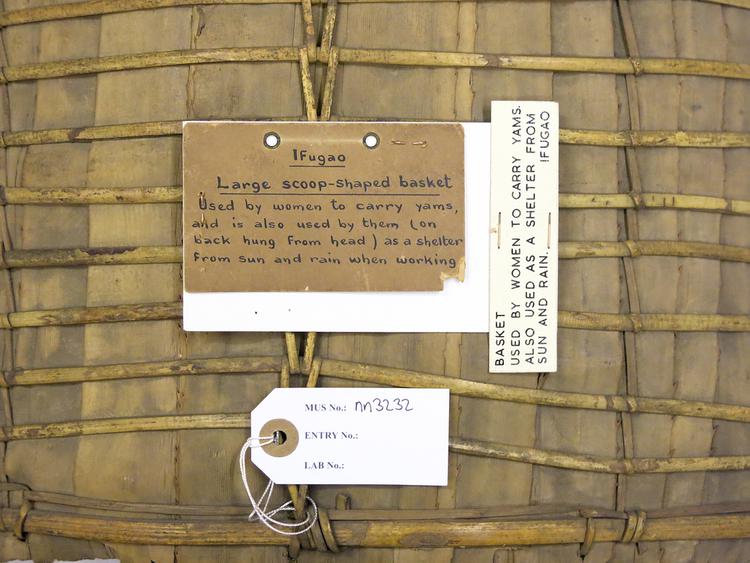 Ifugao
Large scoop-shaped basket
Used by women to carry yams,
and is also used by them (on
back hung from head) as a shelter
from sun and rain when working
BASKET
USED BY WOMEN TO CARRY YAMS.
ALSO USED AS A SHELTER FROM
SUN AND RAIN. IFUGAO
MUS No.: nn3232
ENTRY No.:
LAB No.: